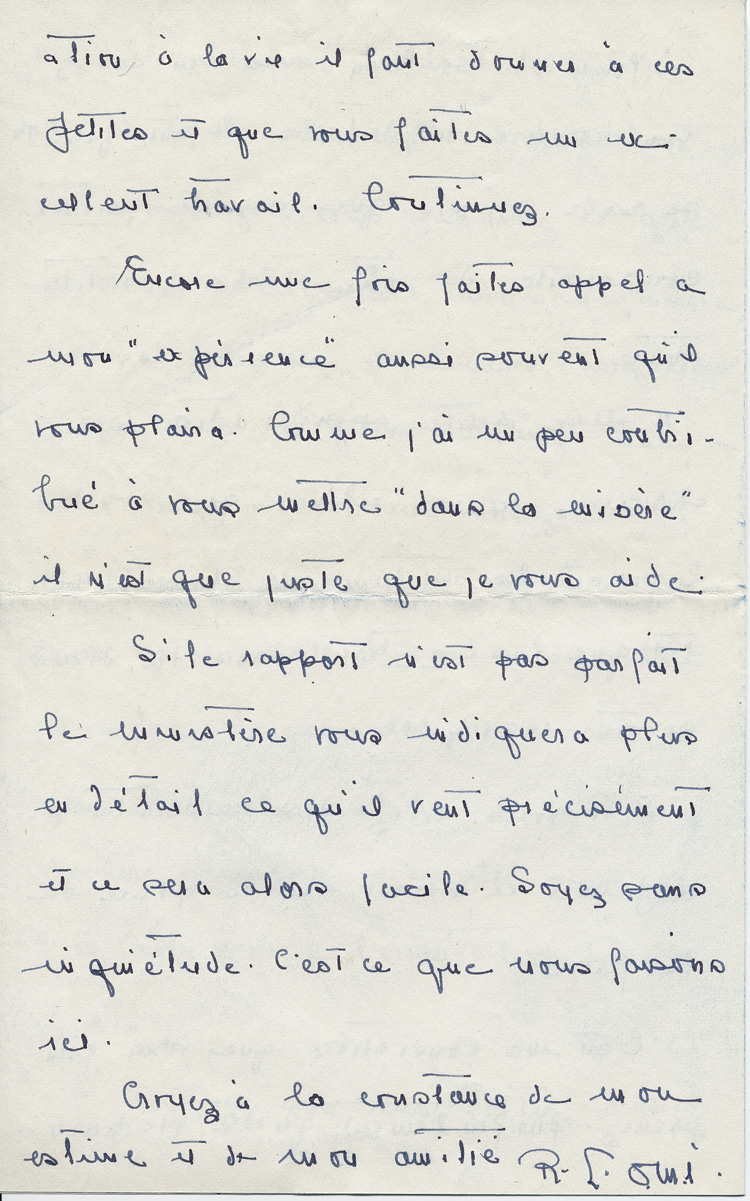 ation à la vie il faut donner à ces
petites et que vous faites un ex-
cellent travail. Continuez.
Encore une fois faites appel a
mon "expérience" aussi souvent qu'il
vous plaira. Comme j'ai un peu contri-
bué à vous mettre "dans la misère"
il n'est que juste que je vous aide.
Si le rapport n'est pas parfait
le ministère vous indiquera plus
en détail ce qu'il veut précisément
et ce sera alors facile. Soyez sans
inquiétude. C'est ce que nous faisons
ici.
Croyez à la constance de mon
estime et de mon amitié R. L.